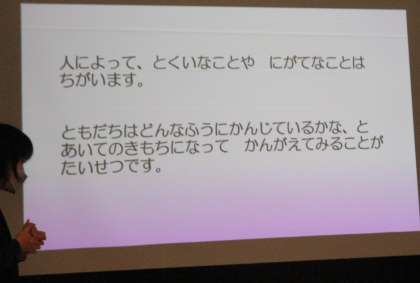 人によって、とくいなことや　にがてなことは
ちがいます。
ともだちはどんなふうにかんじているかな、と
あいてのきもちになって　かんがえてみることが
たいせつです。